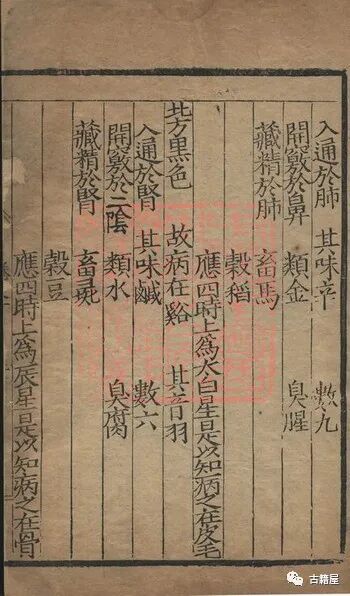 入通於肺 其味辛 數九
開竅於鼻 類金 臭腥
藏精於肺 畜馬
榖稻
應四時上為太白星是以知病之在皮毛
北方黑色 故病在谿 其音羽
入通於腎 其味鹹 數六
開竅於二陰 類水 臭腐
藏精於腎 畜彘
榖豆
應四時上為辰星是以知病之在骨
古籍屋